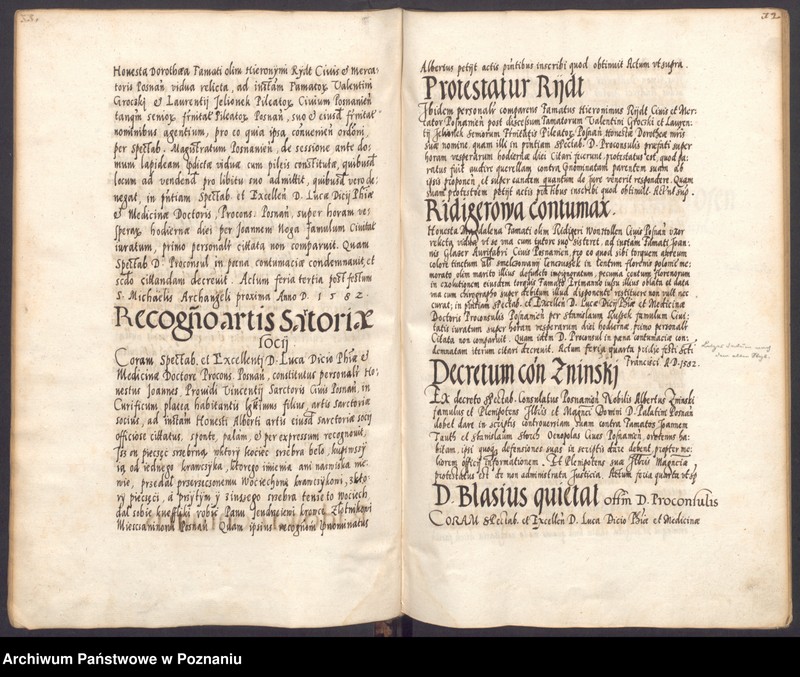 33.
Honesta Dorothæa Famati olim Hieronymi Rydt Civis & Merca-
toris Posnań. vidua relicta, ad instam Famator. Valentini
Grocski et Laurentij Jelionek Pileator. Civium Posnanień
tanq̃ senior. frnitat Pileator. Posnań, suo & eiusd. frnitat
nominibus agentium, pro eo quia ipsa convenień ordini,
per spectab. Magistratum Posnanień, de sessione ante do-
mum lapideam dictæ viduæ cum pileis constituta, quibusd.
locum ad vendend. pro libitu suo admittit, quibusd. vero de-
negat, in pñtiam Spectab. et Excelleń D. Lucæ Dicij Phiæ
& Medicinæ Doctoris, Procons. Posnań, super horam ves-
perar. hodierna diei per Joannem Noga famulum Civitat
iuratum, primo personalr citata non comparuit. Quam
Spectab. D. Proconsul in pœna contumaciæ condemnavit, et
scdo citandam decrevit. Actum feria tertia post festum
S. Michaelis Archangeli proxima Anno D. 1582.
Recogño artis Sartoriæ
socij
Coram Spectab. et Excellentj D. Luca Dicio Phiæ &
Medicinæ Doctore Procons. Posnań, constitutus personalr Ho-
nestus Joannes, Providi Vincentij Sartoris Civis Posnań, in
Curificum platea habitantis legitimus filius, artis Sartoriæ
socius, ad instam Honesti Alberti artis eiusd. sartoriæ socij
officiose citatus, sponte, palam, & per expressum recognovit,
Iss on pieczęć srebrną, który kociec srebra belo, kupiwssy
ią od iednego krawczyka, ktorego imienia ani nazwiska nie
wie, przedał przerzeczonemu Woćiechowi krawczykowi, ktho-
ry pieczęći, a przytym y sinssego srebra tenże to Woćiech
dał sobie knefliki robić Panu Jendrzeiowi kronce Złotnikowi
Miesczaninowi Posnań. Qdam ipsius recogñem pnominatus
32.
Albertus petijt actis pñtibus inscribi quod obtinuit Actum vt supra.
Protestatur Rydt
Ibidem personalr comparens Famatus Hieronimus Rydt Civis et Mer-
cator Posnanień post discessum Famatorum Valentini Grocski et Lauren-
tij Jelionek Seniorum Frnitatis Pileator. Posnań Honestæ Dorotheæ mris
suæ nomine, quam illi in pñtiam spectab. D. Proconsulis præsenti super
horam vesperarum hodiernæ diei Citari fecerunt, protestatus est, quod pa-
ratus fuit audire querellam contra gnominatam parentem suam ab
ipsis proponeń, et super eandem quantum de iure venerit respondere. Quam
suam protestiem petijt actis pñtibus inscribi quod obtinuit. Actũ ut sup.
Ridigerowa contumax.
Honesta Magdalena Famati olim Ridigeri Wontollen Civis Posnań vxor
relicta, vidua vt se vna cum tutore suo sisteret, ad instam Famati Joan-
nis Glaser Aurifabri Civis Posnanień, pro eo quod sibi torquem aureum
colore tinctum als smelczowany Lencussek in centum florenis polonic me-
morato olim marito illius defuncto impignoratum, pecunia centum florenorum
in exolutionem eiusdem torquis Famato Erimanno iusto illius oblata et data
vna cum chirographo super debitum illud disponente restituere non vult nec
curat; in pñtiam spectab. et Excelleń D. Lucæ Dicij Phiæ et Medicinæ
Doctoris Proconsulis Posnanień per Stanislaum Slupek famulum Civi-
tatis iuratum super horam vesperarum diei hodiernæ primo personalr
Citata non comparuit. Quam idem D. Proconsul in pœna contumaciæ con-
demnatam iterum citari decrevit. Actum feria quarta pridie festi Scti
Francisci A.D. 1582.
Decretum con Zninskj
Ex decreto spectab. Consulatus Posnanień Nobilis Albertus Zninski
famulus et Plenipoteńs Jllris et Magnci Domini D. Palatini Posnań
dobet dare in scriptis controversiam suam contra Famatos Joannem
Tauth et Stanislaum Storch Oenopolas Cives Posnanień, proteńs ha-
bitam. ipsi quoq. defensiones suas in scriptis dare debent, propter me-
liorem officij informationem. Et Plenipoteńs suæ Jllris Magnciæ
protestatus est de non administrata Justicia. Actum feria quarta vt sp
D. Blasius quietat offim D. Proconsulis
CORAM Spectab. et Excelleń D. Luca Dicio Phiæ et Medicinæ
Archiwum Państwowe w Poznaniu